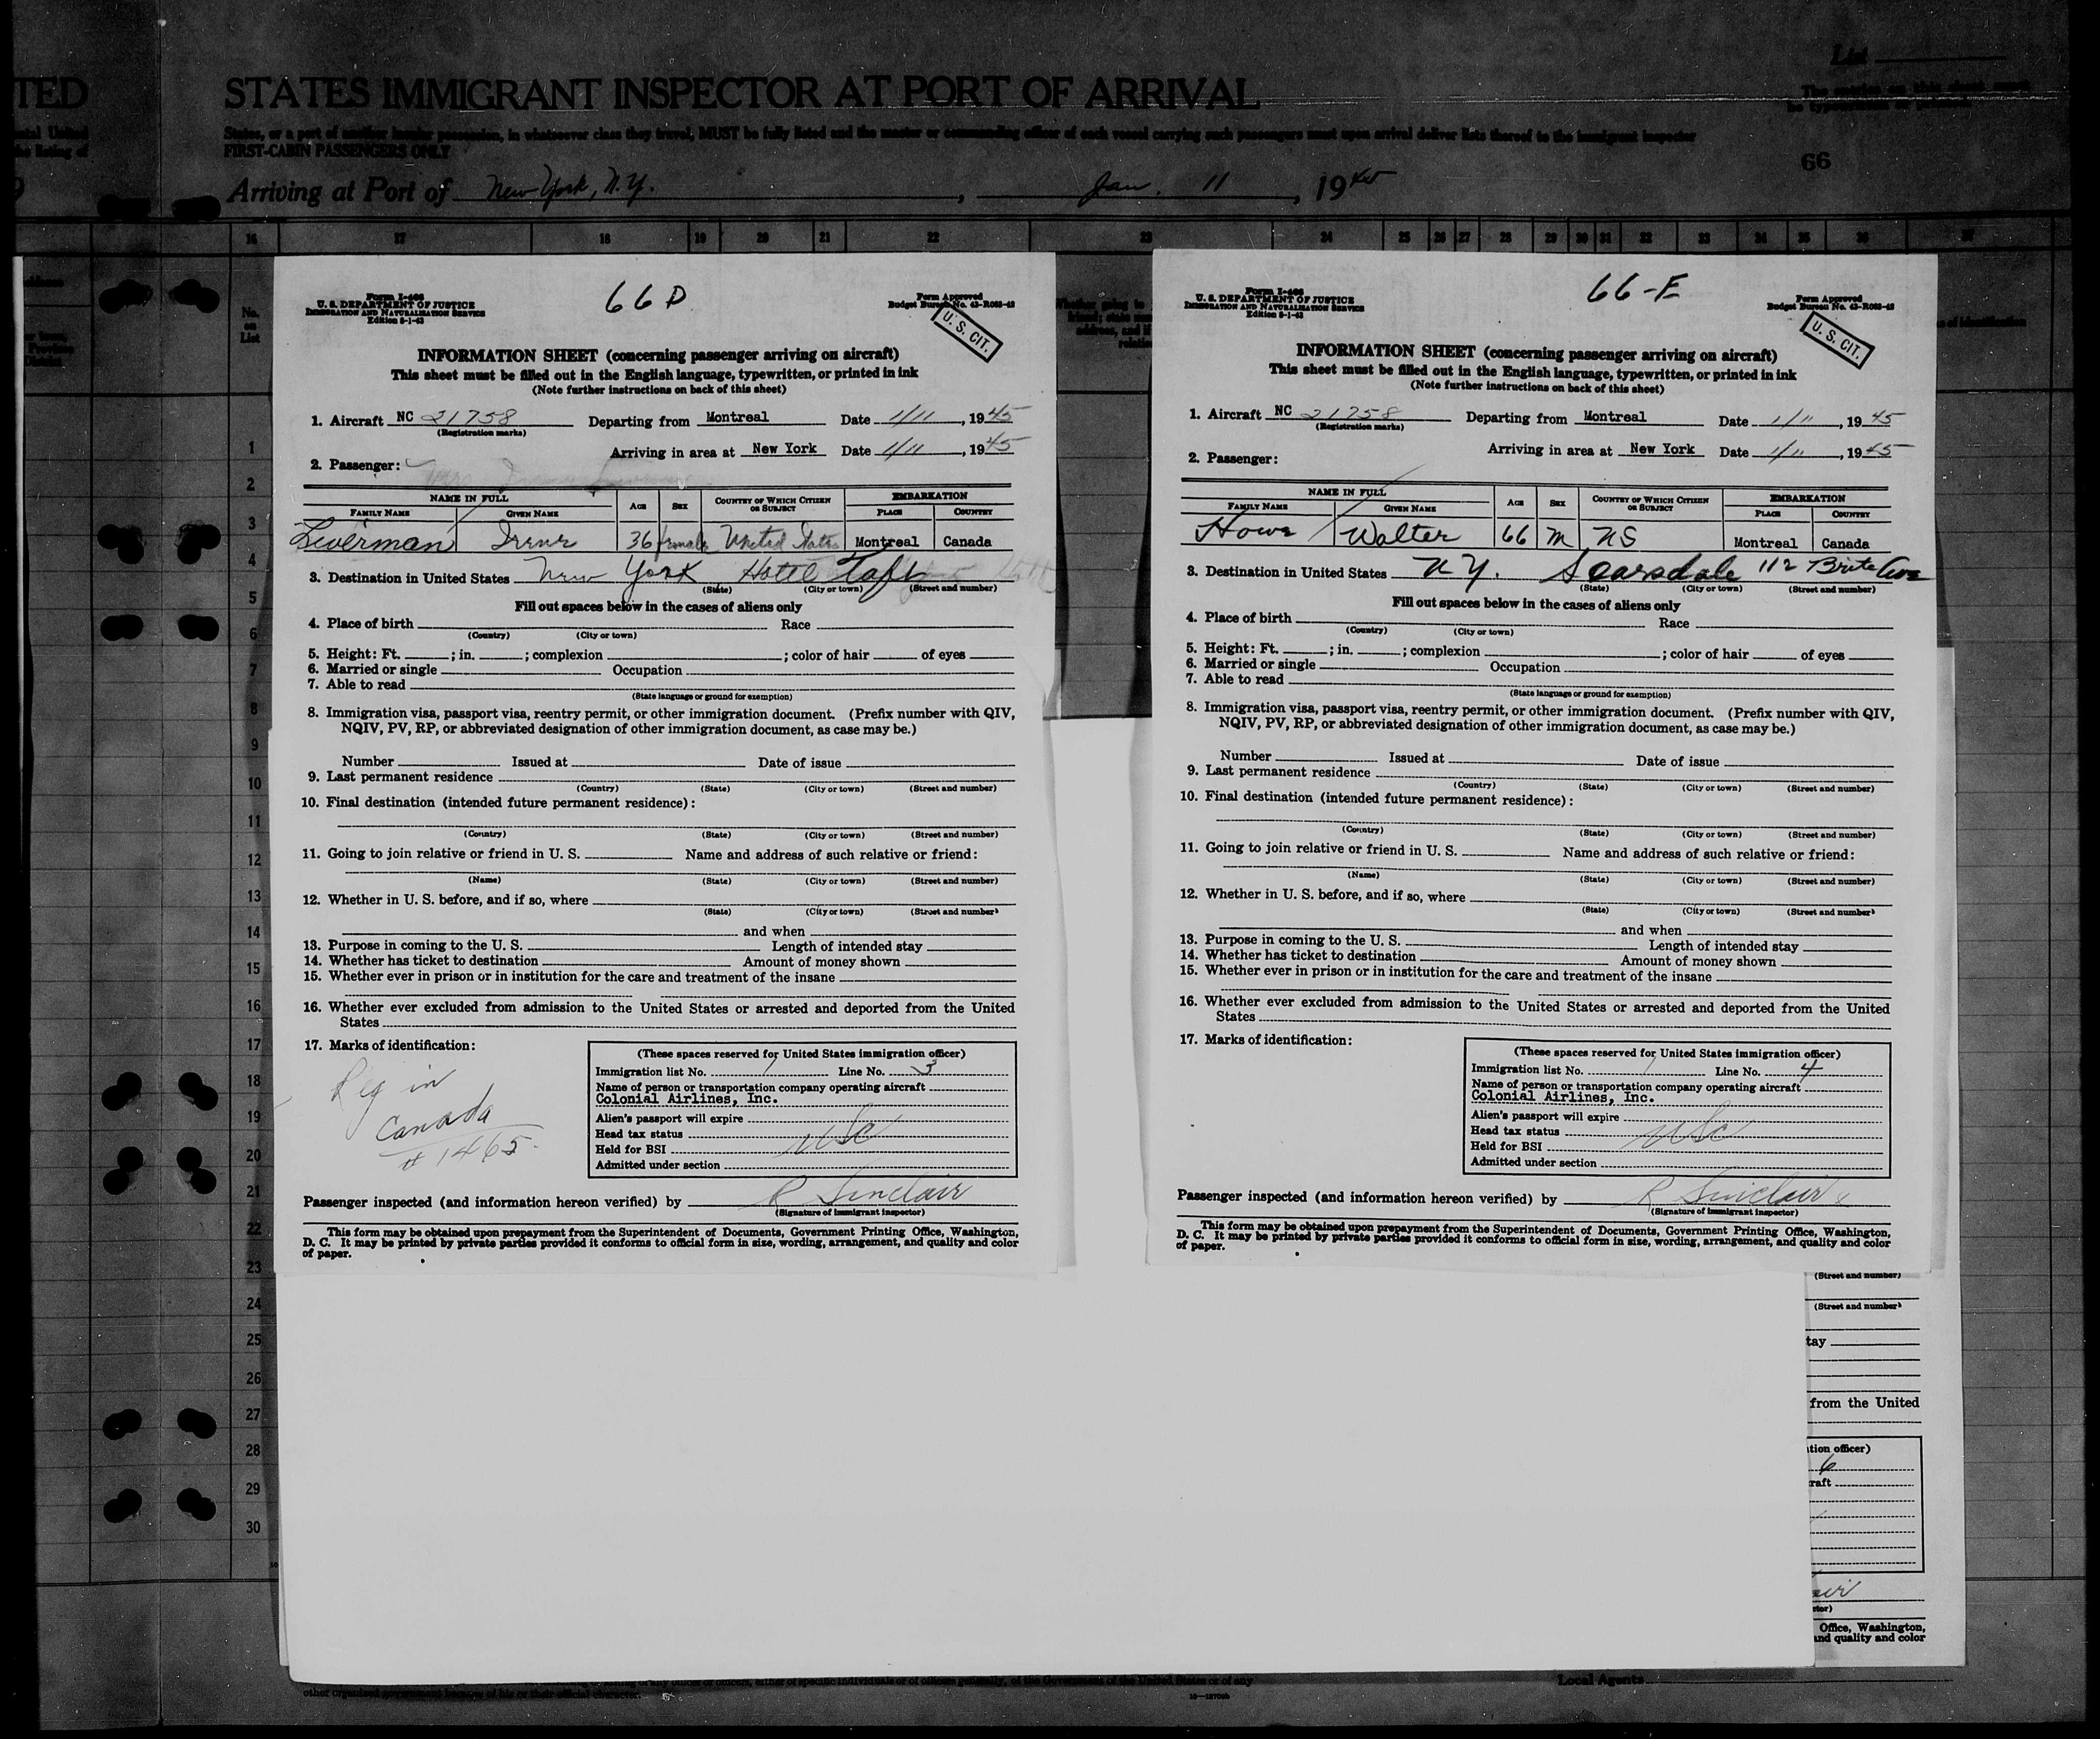 TED
STATES IMMIGRANT INSPECTOR AT PORT OF ARRIVAL
List
States, or a part of another insular possession, in whatsoever class they travel, MUST be fully listed and the master or commanding officer of each vessel carrying such passengers must upon arrival deliver lists thereof to the immigrant inspector
FIRST-CABIN PASSENGERS ONLY
66
Arriving at Port of New York, N.Y., Jan. 11, 1945
16 17 18 19 20 21 22 23 24 25 26 27 28 29 30 31 32 33 34 35 36 37
No. on List
1
2
3
4
5
6
7
8
9
10
11
12
13
14
15
16
17
18
19
20
21
22
23
24
25
26
27
28
29
30
66 D
Form I-466
U. S. DEPARTMENT OF JUSTICE
IMMIGRATION AND NATURALIZATION SERVICE
Edition 5-1-43
Form Approved
Budget Bureau No. 43-R083-42
U. S. CIT.
INFORMATION SHEET (concerning passenger arriving on aircraft)
This sheet must be filled out in the English language, typewritten, or printed in ink
(Note further instructions on back of this sheet)
1. Aircraft NC 21758 Departing from Montreal Date 1/11, 1945
(Registration marks)
Arriving in area at New York Date 1/11, 1945
2. Passenger:
NAME IN FULL AGE SEX COUNTRY OF WHICH CITIZEN OR SUBJECT EMBARKATION
FAMILY NAME GIVEN NAME PLACE COUNTRY
Liverman Irene 36 female United States Montreal Canada
3. Destination in United States New York Hotel Taft
(State) (City or town) (Street and number)
Fill out spaces below in the cases of aliens only
4. Place of birth Race
(Country) (City or town)
5. Height: Ft. ; in. ; complexion ; color of hair of eyes
6. Married or single Occupation
7. Able to read
(State language or ground for exemption)
8. Immigration visa, passport visa, reentry permit, or other immigration document. (Prefix number with QIV,
NQIV, PV, RP, or abbreviated designation of other immigration document, as case may be.)
Number Issued at Date of issue
9. Last permanent residence
(Country) (State) (City or town) (Street and number)
10. Final destination (intended future permanent residence):
(Country) (State) (City or town) (Street and number)
11. Going to join relative or friend in U. S. Name and address of such relative or friend:
(Name) (State) (City or town) (Street and number)
12. Whether in U. S. before, and if so, where
(State) (City or town) (Street and number)
and when
13. Purpose in coming to the U. S. Length of intended stay
14. Whether has ticket to destination Amount of money shown
15. Whether ever in prison or in institution for the care and treatment of the insane
16. Whether ever excluded from admission to the United States or arrested and deported from the United
States
17. Marks of identification:
Reg in
Canada
# 1465
(These spaces reserved for United States immigration officer)
Immigration list No. 1 Line No. 3
Name of person or transportation company operating aircraft
Colonial Airlines, Inc.
Alien's passport will expire
Head tax status USC
Held for BSI
Admitted under section
Passenger inspected (and information hereon verified) by R Sinclair
(Signature of immigrant inspector)
This form may be obtained upon prepayment from the Superintendent of Documents, Government Printing Office, Washington,
D. C. It may be printed by private parties provided it conforms to official form in size, wording, arrangement, and quality and color
of paper.
66-E
Form I-466
U. S. DEPARTMENT OF JUSTICE
IMMIGRATION AND NATURALIZATION SERVICE
Edition 5-1-43
Form Approved
Budget Bureau No. 43-R083-42
U. S. CIT.
INFORMATION SHEET (concerning passenger arriving on aircraft)
This sheet must be filled out in the English language, typewritten, or printed in ink
(Note further instructions on back of this sheet)
1. Aircraft NC 21758 Departing from Montreal Date 1/11, 1945
(Registration marks)
Arriving in area at New York Date 1/11, 1945
2. Passenger:
NAME IN FULL AGE SEX COUNTRY OF WHICH CITIZEN OR SUBJECT EMBARKATION
FAMILY NAME GIVEN NAME PLACE COUNTRY
Howe Walter 66 M US Montreal Canada
3. Destination in United States N.Y. Scarsdale 112 Brite Ave
(State) (City or town) (Street and number)
Fill out spaces below in the cases of aliens only
4. Place of birth Race
(Country) (City or town)
5. Height: Ft. ; in. ; complexion ; color of hair of eyes
6. Married or single Occupation
7. Able to read
(State language or ground for exemption)
8. Immigration visa, passport visa, reentry permit, or other immigration document. (Prefix number with QIV,
NQIV, PV, RP, or abbreviated designation of other immigration document, as case may be.)
Number Issued at Date of issue
9. Last permanent residence
(Country) (State) (City or town) (Street and number)
10. Final destination (intended future permanent residence):
(Country) (State) (City or town) (Street and number)
11. Going to join relative or friend in U. S. Name and address of such relative or friend:
(Name) (State) (City or town) (Street and number)
12. Whether in U. S. before, and if so, where
(State) (City or town) (Street and number)
and when
13. Purpose in coming to the U. S. Length of intended stay
14. Whether has ticket to destination Amount of money shown
15. Whether ever in prison or in institution for the care and treatment of the insane
16. Whether ever excluded from admission to the United States or arrested and deported from the United
States
17. Marks of identification:
(These spaces reserved for United States immigration officer)
Immigration list No. 1 Line No. 4
Name of person or transportation company operating aircraft
Colonial Airlines, Inc.
Alien's passport will expire
Head tax status USC
Held for BSI
Admitted under section
Passenger inspected (and information hereon verified) by R Sinclair
(Signature of immigrant inspector)
This form may be obtained upon prepayment from the Superintendent of Documents, Government Printing Office, Washington,
D. C. It may be printed by private parties provided it conforms to official form in size, wording, arrangement, and quality and color
of paper.
(Street and number)
(Street and number)
tay
from the United
tion officer)
6
raft
air
tor)
Office, Washington,
and quality and color
Local Agents
other organized government because of his or their official character.